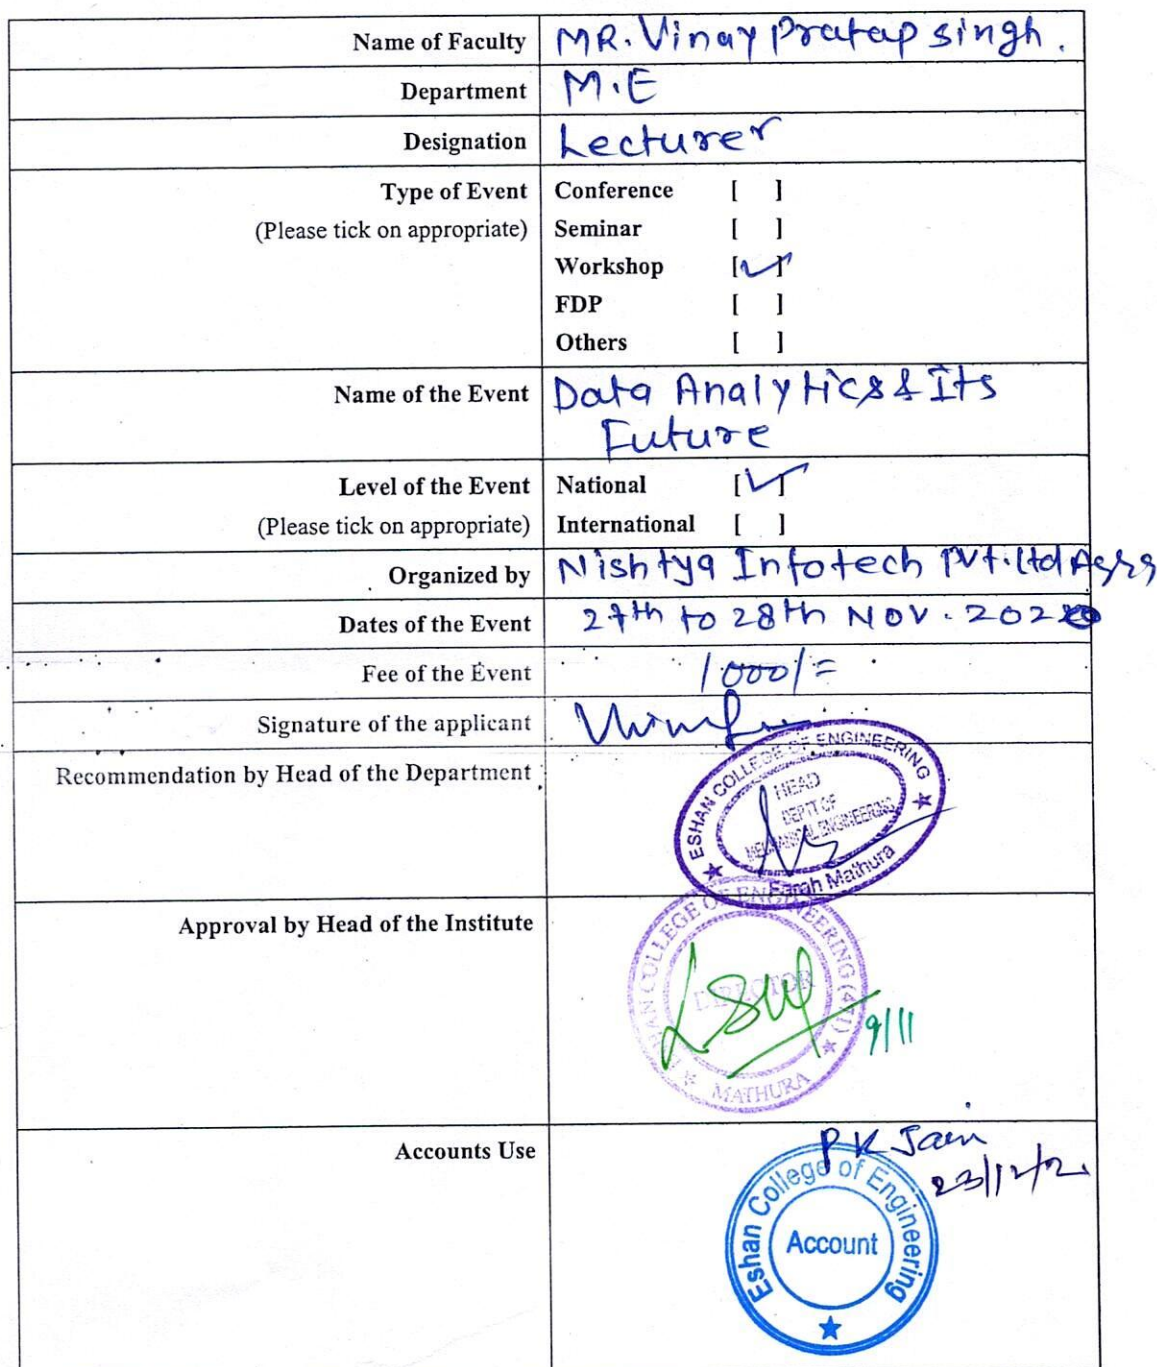 Name of Faculty MR. Vinay Pratap singh.
Department M.E
Designation Lecturer
Type of Event Conference [ ]
(Please tick on appropriate) Seminar [ ]
Workshop [✓]
FDP [ ]
Others [ ]
Name of the Event Data Analytics & Its
Future
Level of the Event National [✓]
(Please tick on appropriate) International [ ]
Organized by Nishtya Infotech Pvt. Ltd Agra
Dates of the Event 27th to 28th NOV. 2020
Fee of the Event 1000/=
Signature of the applicant
Recommendation by Head of the Department
ESHAN COLLEGE OF ENGINEERING
HEAD
DEPTT OF
MECHANICAL ENGINEERING
Farah Mathura
Approval by Head of the Institute
ESHAN COLLEGE OF ENGINEERING (471)
DIRECTOR
9/11
MATHURA
Accounts Use
P K Jain
23/12/2
Eshan College of Engineering
Account